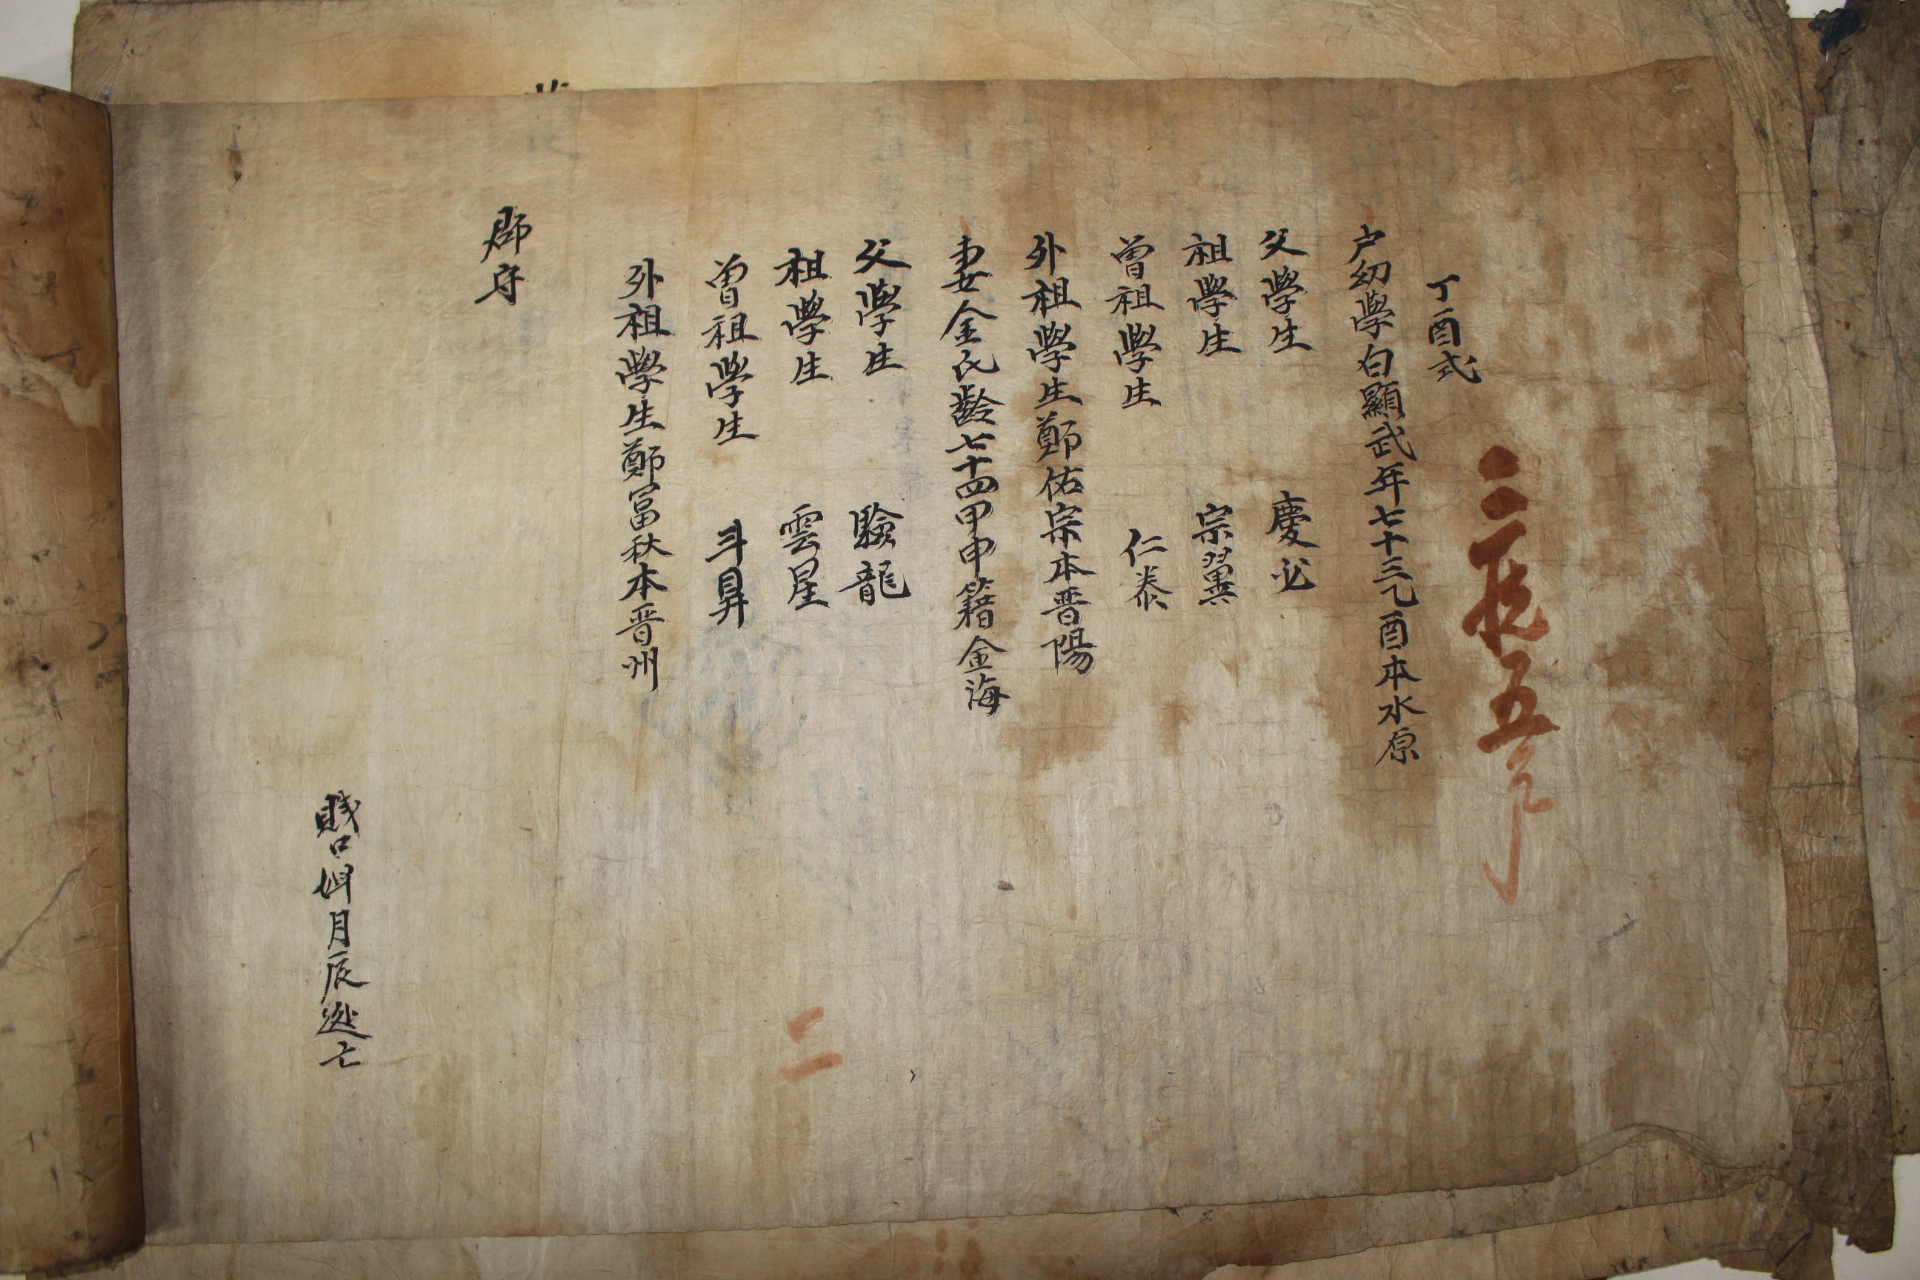 丁酉式
戶幼學白顯武年七十三乙酉本水原
父學生 慶必
祖學生 宗翼
曾祖學生 仁泰
外祖學生鄭佑宗本晋陽
妻金氏齡七十四甲申籍金海
父學生 驗龍
祖學生 雲星
曾祖學生 斗昇
外祖學生鄭冨秋本晋州
郡守
賤口婢月辰逃亡
二
五